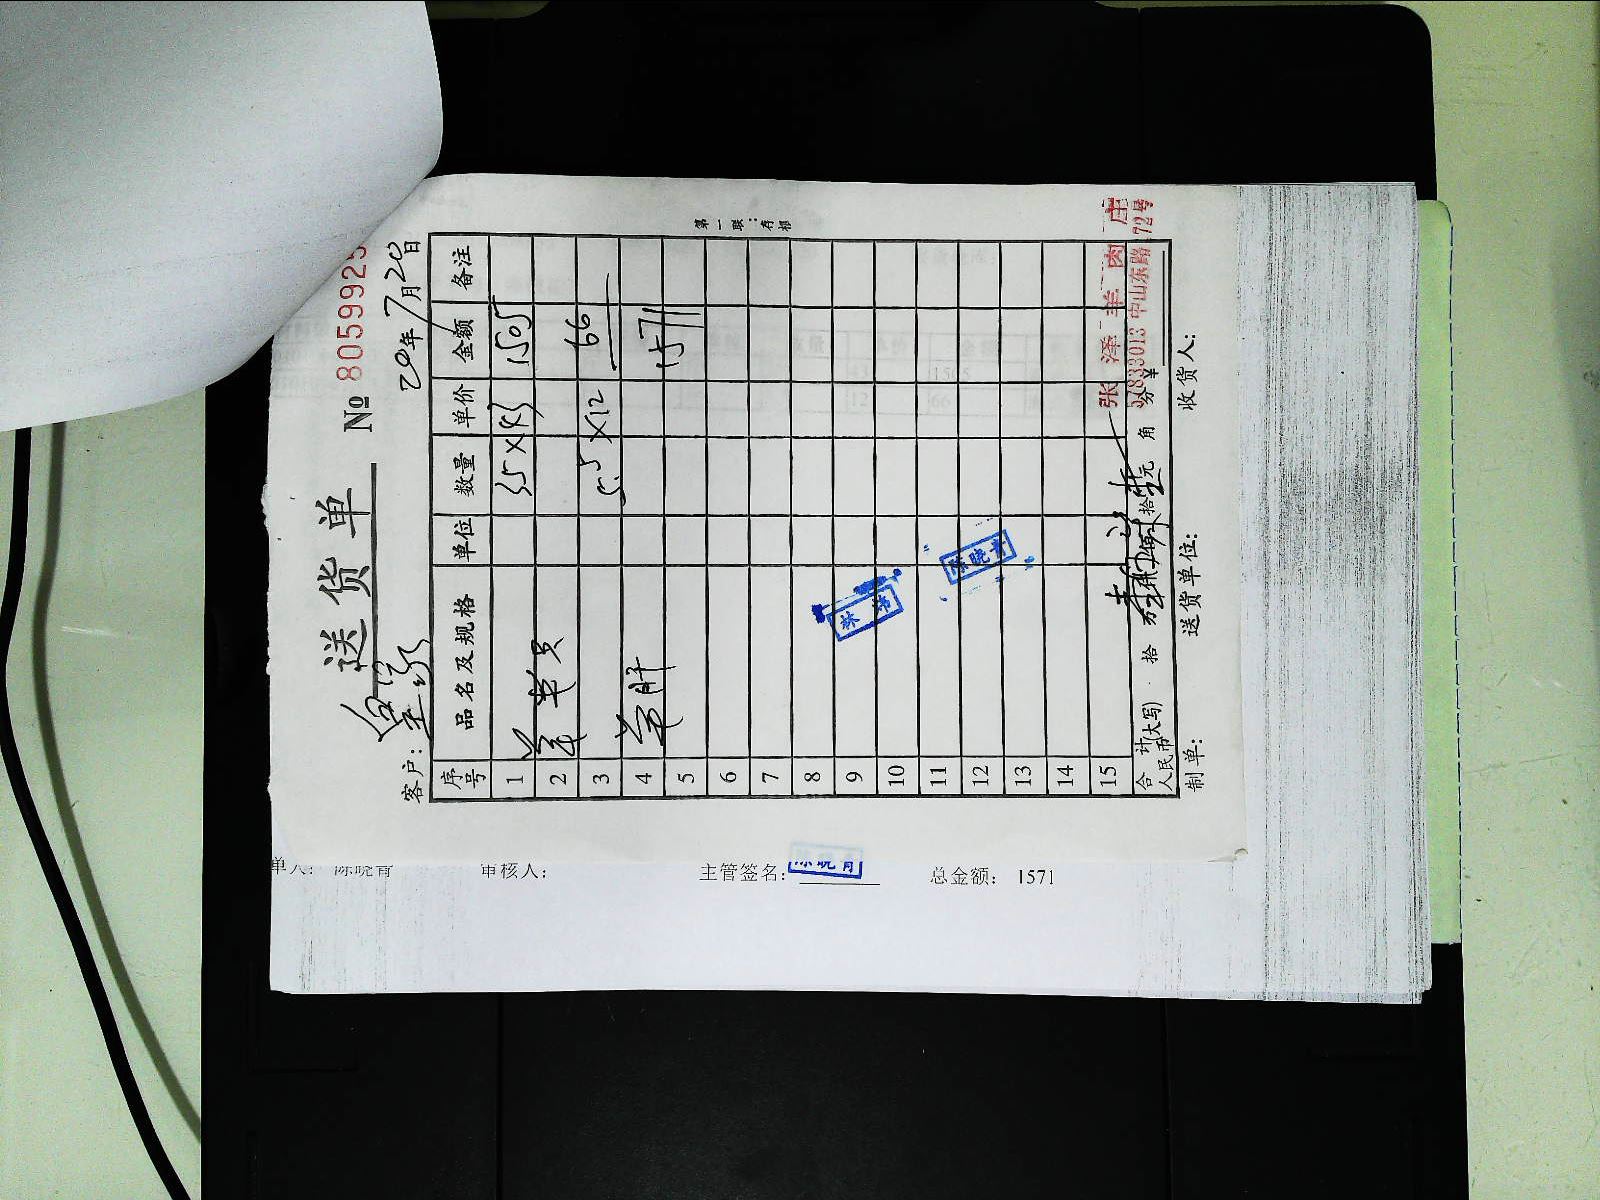 送货单 № 8059925
客户：皇家 20年7月20日
序号 品名及规格 单位 数量 单价 金额 备注
1 35×43 1505
2
3 5.5×12 66
4 羊肝 1571
5
6
7
8
9
10
11
12
13
14
15
合计人民币(大写) 拾 万 仟 佰 拾 元 角 分 ¥
制单： 送货单位： 收货人：
第一联：存根
张泽羊肉庄
中山东路
陈晓青
单人： 陈晓青 审核人： 主管签名： 陈晓青 总金额： 1571